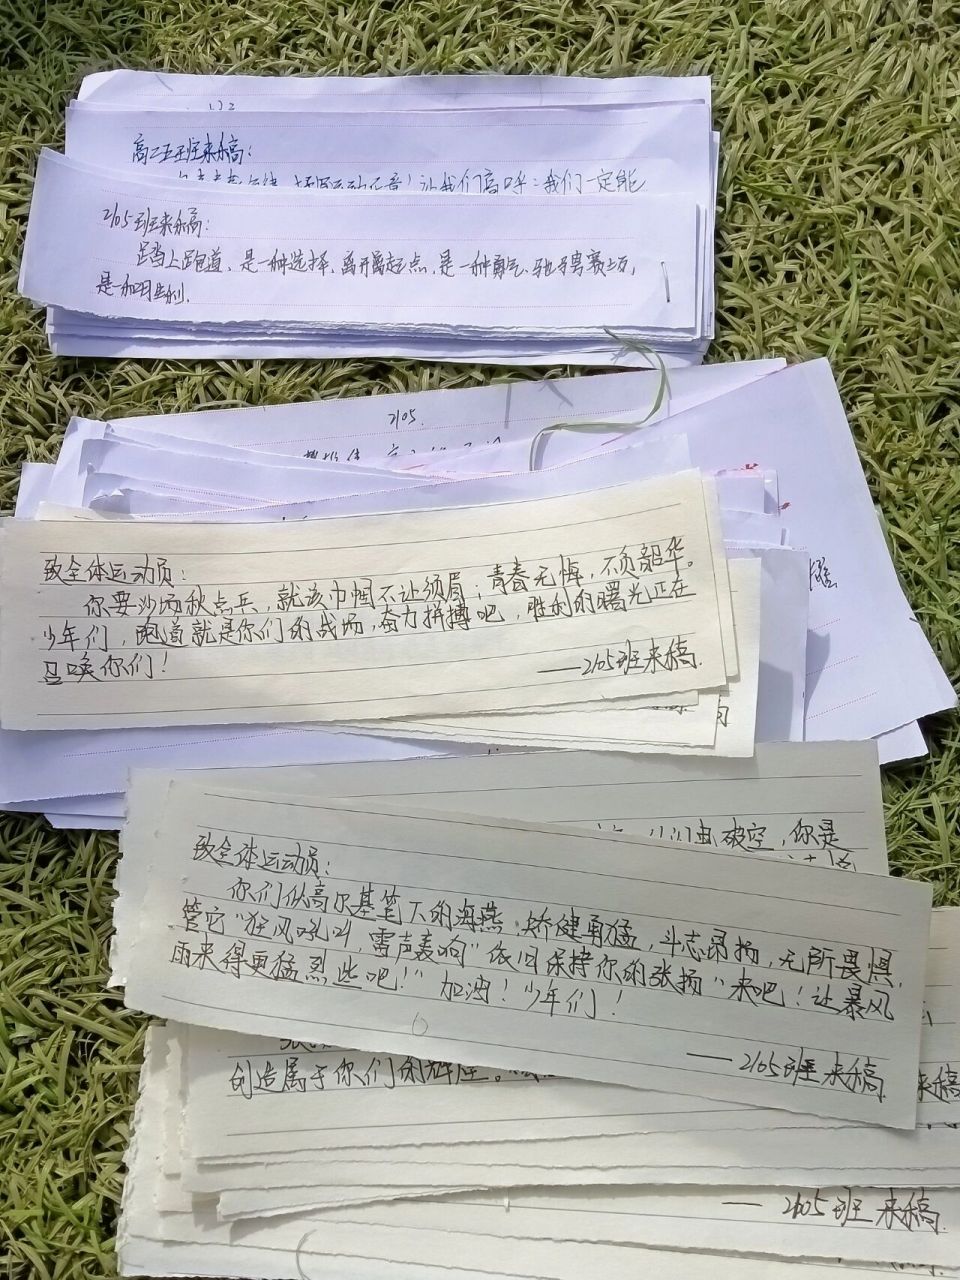 高二五班来稿:
让我们高呼:我们一定能
2105班来稿:
踏上跑道,是一种选择,离开起点,是一种勇气,驰骋赛场,
是一种胜利.
2105.
致全体运动员:
你要沙场秋点兵,就该巾帼不让须眉;青春无悔,不负韶华。
少年们,跑道就是你们的战场,奋力拼搏吧,胜利的曙光正在
召唤你们!
——2105班来稿.
破空,你是
致全体运动员:
你们似高尔基笔下的海燕,矫健勇猛,斗志昂扬,无所畏惧,
管它"狂风吼叫 雷声轰响"依旧保持你的张扬"来吧!让暴风
雨来得更猛烈些吧!"加油!少年们!
——2105班来稿.
创造属于你们的辉煌。
来稿
——2105班来稿.